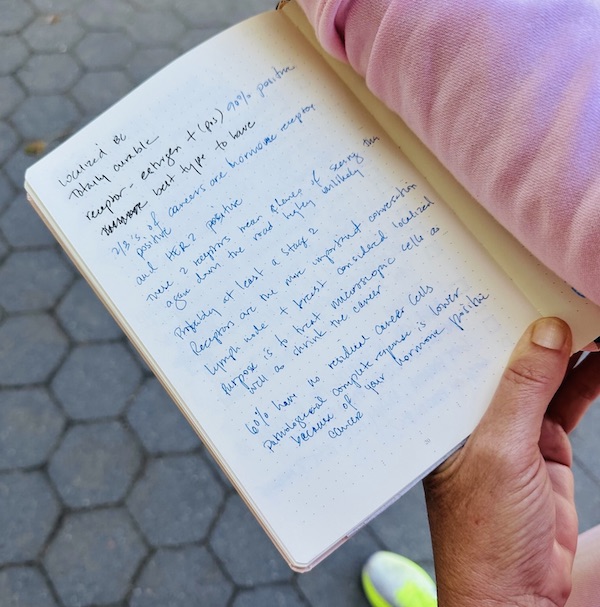 Localized BC
Totally curable
receptor - estrogen + (pos) 90% positive
hormone best type to have
2/3's of cancers are hormone receptor
positive
and HER2 positive
These 2 receptors mean chances of seeing this
again down the road highly unlikely
Probably at least a stage 2
Receptors are the more important conversation
Lymph node + breast considered localized
Purpose is to treat microscopic cells as
well as shrink the cancer
60% have no residual cancer cells
pathological complete response is lower
because of your hormone positive
cancer